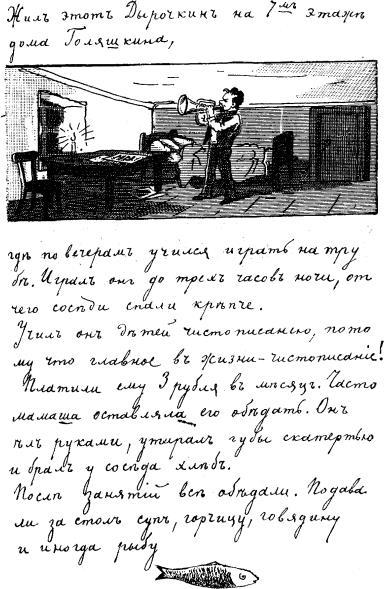 Жилъ этотъ Дырочкинъ на 7мъ этажѣ
дома Голяшкина,
гдѣ по вечерамъ учился играть на тру
бѣ. Игралъ онъ до трехъ часовъ ночи, от
чего сосѣди спали крѣпче.
Училъ онъ дѣтей чистописанію, пото
му что главное въ жизни-чистописаніе!
Платили ему 3 рубля въ мѣсяцъ. Часто
мамаша оставляла его обѣдать. Онъ
ѣлъ руками, утиралъ губы скатертью
и бралъ у сосѣда хлѣбъ.
Послѣ занятій всѣ обѣдали. Подава
ли за столъ супъ, горчицу, говядину
и иногда рыбу